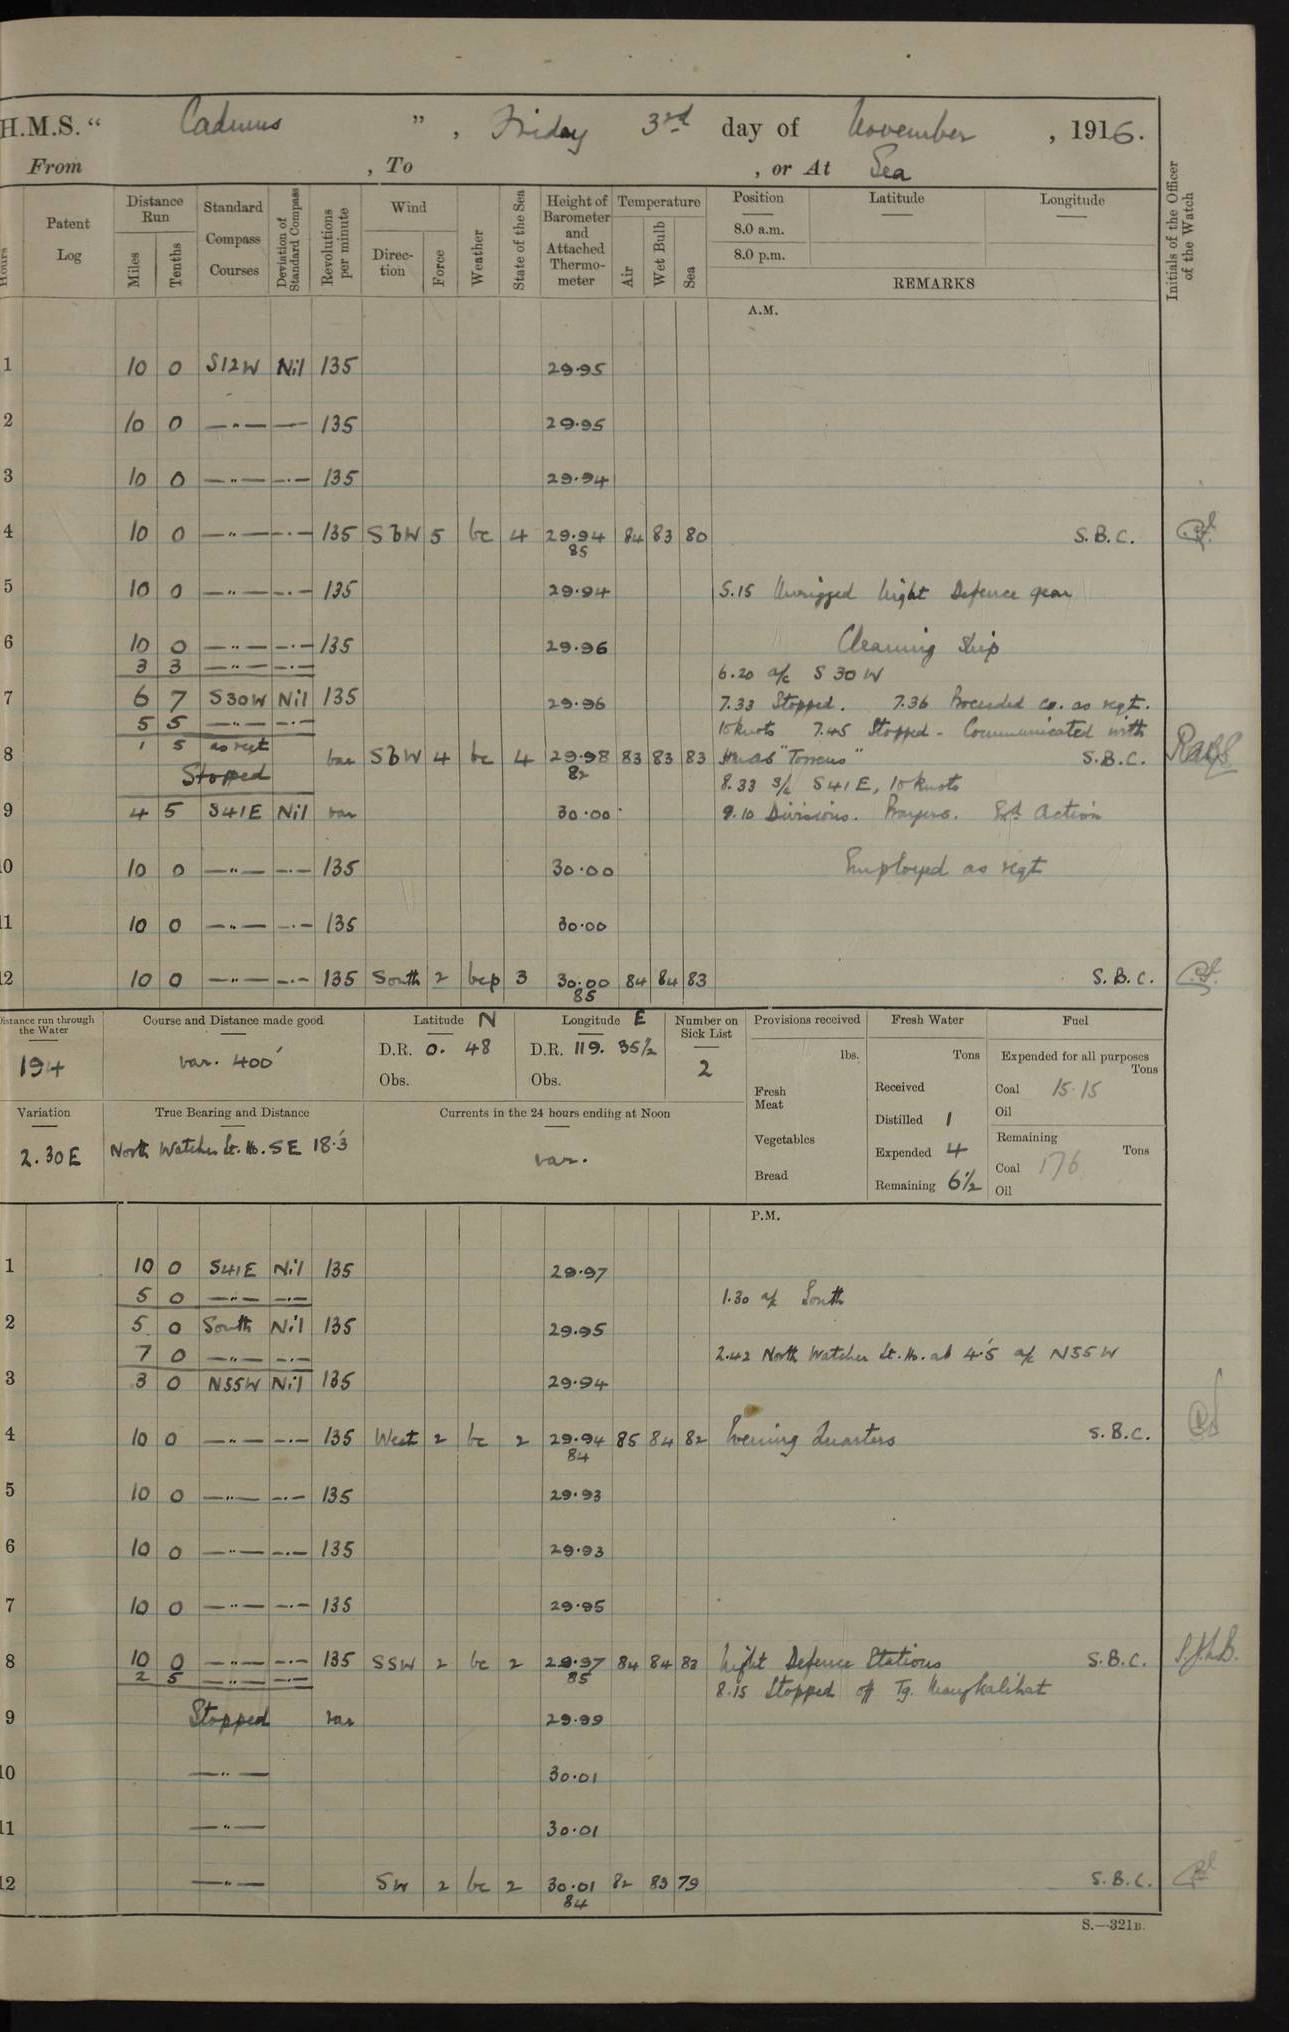 H.M.S. “ Cadmus ” , Friday 3rd day of November , 1916.
From , To , or At Sea
Hours
Patent Log
Distance Run
Miles
Tenths
Standard Compass Courses
Deviation of Standard Compass
Revolutions per minute
Wind
Direction
Force
Weather
State of the Sea
Height of Barometer and Attached Thermometer
Temperature
Air
Wet Bulb
Sea
Position
8.0 a.m.
8.0 p.m.
Latitude
Longitude
REMARKS
Initials of the Officer of the Watch
A.M.
1 10 0 S12W Nil 135 29.95
2 10 0 —"— — 135 29.95
3 10 0 —"— —"— 135 29.94
4 10 0 —"— —"— 135 SbW 5 bc 4 29.94 84 83 80 S.B.C.
85
5 10 0 —"— —"— 135 29.94 5.15 Unrigged Night Defence gear
6 10 0 —"— —"— 135 29.96 Cleaning Ship
3 3 —"— —"— 6.20 a/c S 30 W
7 6 7 S30W Nil 135 29.96 7.33 Stopped. 7.36 Proceeded co. as reqt.
5 5 —"— —"— 10 knots 7.45 Stopped - Communicated with
8 1 5 as reqt var SbW 4 bc 4 29.98 83 83 83 HMAS "Torrens" S.B.C.
82
Stopped 8.33 S/c S41E, 10 knots
9 4 5 S41E Nil var 30.00 9.10 Divisions. Prayers. Action
10 10 0 —"— —"— 135 30.00 Employed as reqt
11 10 0 —"— —"— 135 30.00
12 10 0 —"— —"— 135 South 2 bcp 3 30.00 84 84 83 S.B.C.
85
Distance run through the Water
194
Course and Distance made good
var. 400'
Latitude N
D.R. 0. 48
Obs.
Longitude E
D.R. 119. 35½
Obs.
Number on Sick List
2
Provisions received
lbs.
Fresh Meat
Vegetables
Bread
Fresh Water
Tons
Received
Distilled 1
Expended 4
Remaining 6½
Fuel
Expended for all purposes
Tons
Coal 15.15
Oil
Remaining
Tons
Coal 176
Oil
Variation
2.30E
True Bearing and Distance
North Watcher Lt. Ho. SE 18.3
Currents in the 24 hours ending at Noon
var.
P.M.
1 10 0 S41E Nil 135 29.97
5 0 —"— —"— 1.30 a/c South
2 5 0 South Nil 135 29.95
7 0 —"— —"— 2.42 North Watcher Lt. Ho. ab 4.5 a/c N55W
3 3 0 N55W Nil 135 29.94
4 10 0 —"— —"— 135 West 2 bc 2 29.94 85 84 82 Evening Quarters S.B.C.
84
5 10 0 —"— —"— 135 29.93
6 10 0 —"— —"— 135 29.93
7 10 0 —"— —"— 135 29.95
8 10 0 —"— —"— 135 SSW 2 bc 2 29.97 84 84 83 Night Defence Stations S.B.C.
85
2 5 —"— —"— 8.15 Stopped off Tg. Mangkalihat
9 Stopped var 29.99
10 —"— 30.01
11 —"— 30.01
12 —"— SW 2 bc 2 30.01 82 83 79 S.B.C.
84
S.—321B.